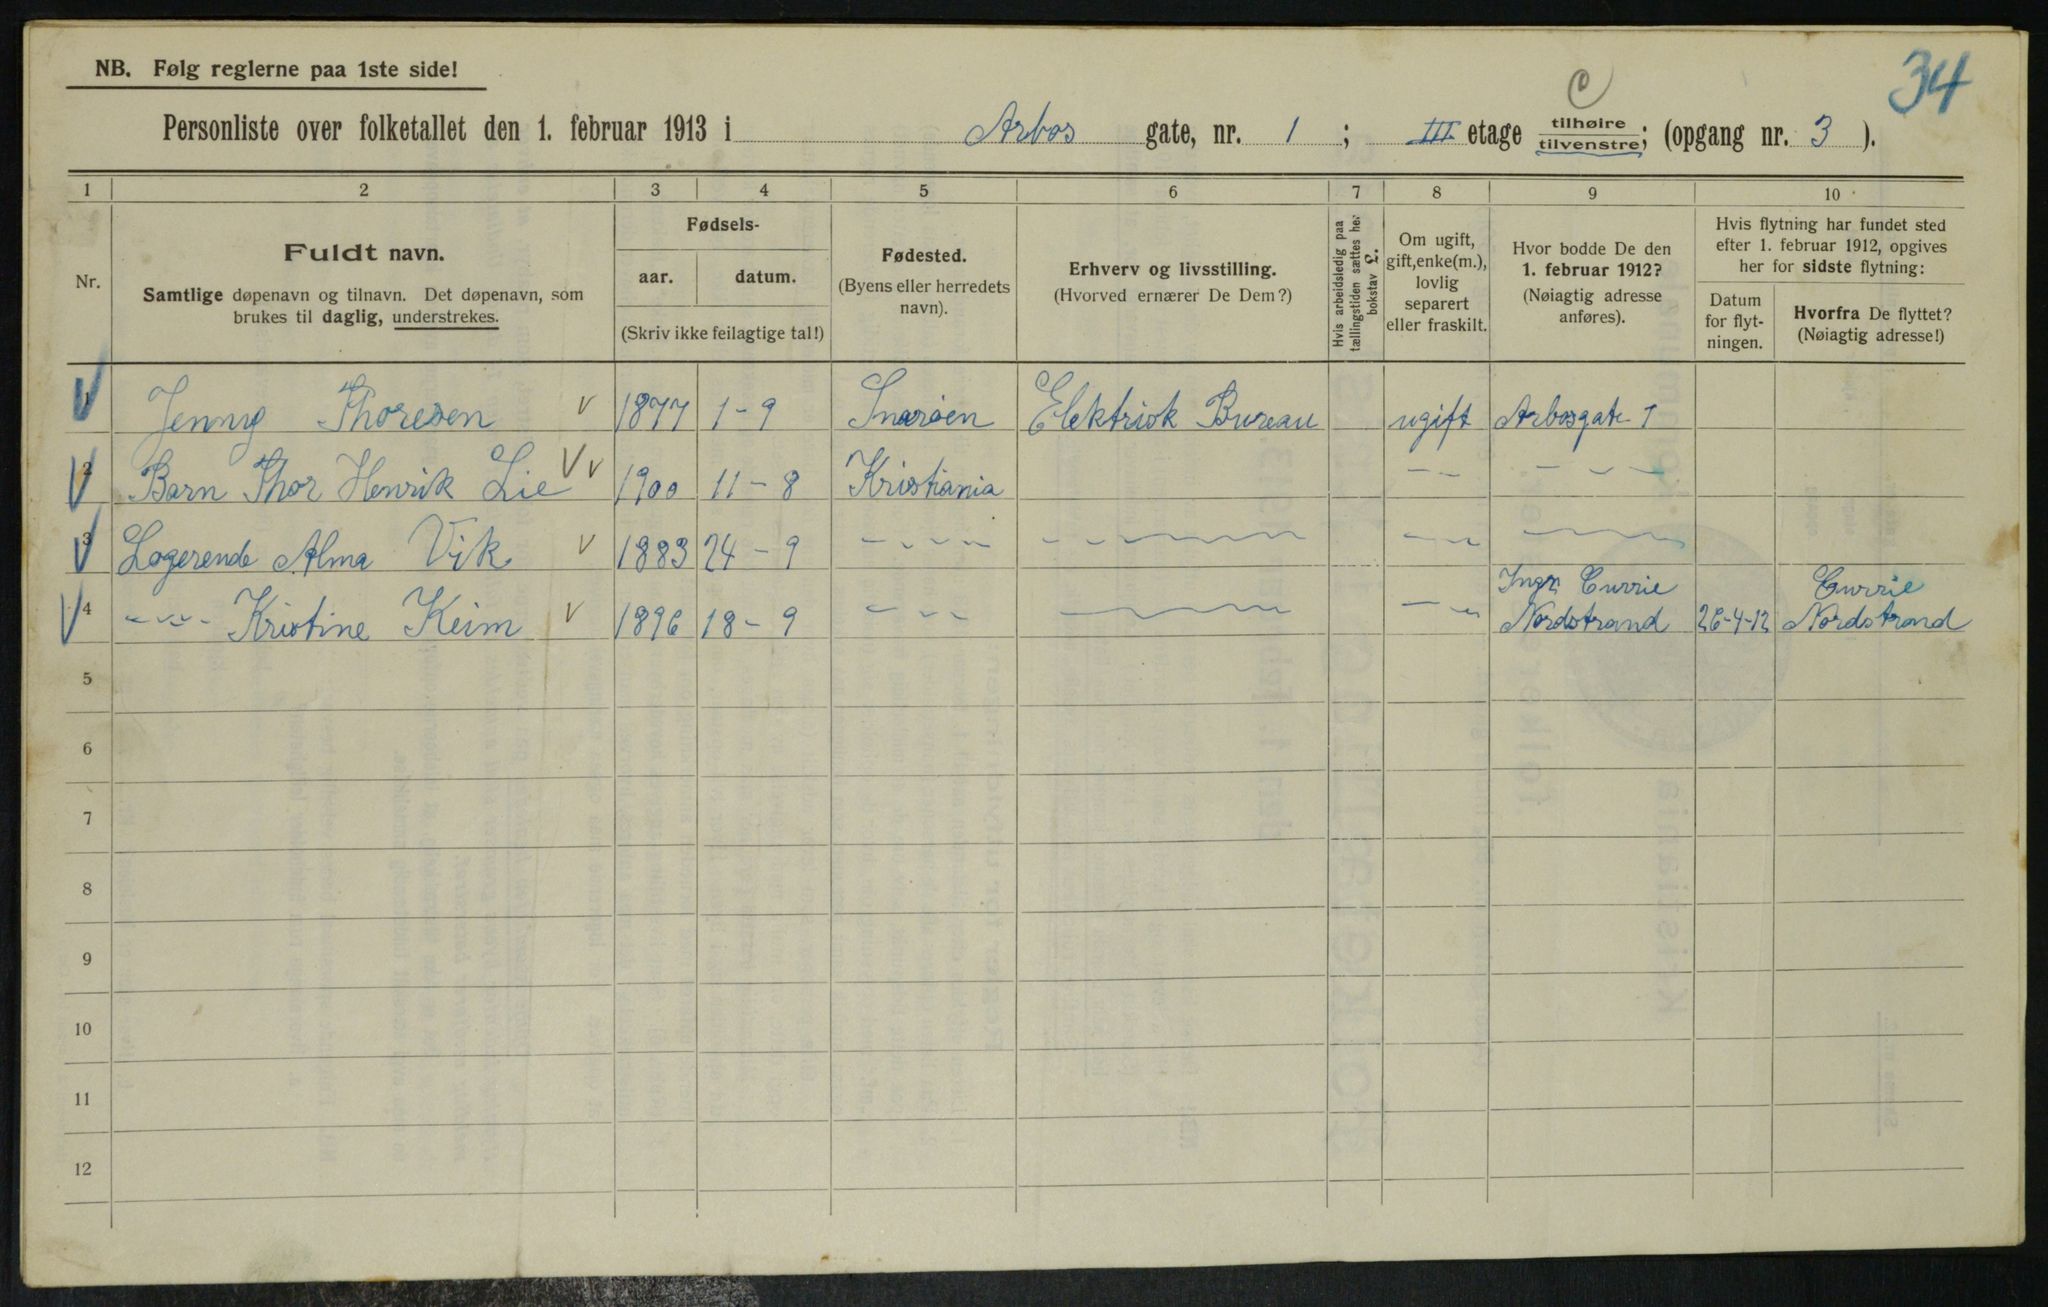 34
NB. Følg reglerne paa 1ste side!
C
Personliste over folketallet den 1. februar 1913 i Arbos gate, nr. 1 ; III etage tilhøire tilvenstre; (opgang nr. 3 ).
1 2 3 4 5 6 7 8 9 10
Nr.
Fuldt navn.
Samtlige døpenavn og tilnavn. Det døpenavn, som
brukes til daglig, understrekes.
Fødsels-
aar. datum.
(Skriv ikke feilagtige tal!)
Fødested.
(Byens eller herredets
navn).
Erhverv og livsstilling.
(Hvorved ernærer De Dem?)
Hvis arbeidsledig paa
tællingstiden sættes her
bokstav L.
Om ugift,
gift, enke(m.),
lovlig
separert
eller fraskilt.
Hvor bodde De den
1. februar 1912?
(Nøiagtig adresse
anføres).
Hvis flytning har fundet sted
efter 1. februar 1912, opgives
her for sidste flytning:
Datum
for flyt-
ningen.
Hvorfra De flyttet?
(Nøiagtig adresse!)
1 Jenny Thoresen 1877 1-9 Snarøen Elektrisk Bureau ugift Arbosgate 1
2 Barn Thor Henrik Lie 1900 11-8 Kristiania
3 Logerende Alma Vik 1883 24-9
4 Kristine Keim 1896 18-9 Ingr Currie Nordstrand 26-4-12 Currie Nordstrand
5
6
7
8
9
10
11
12